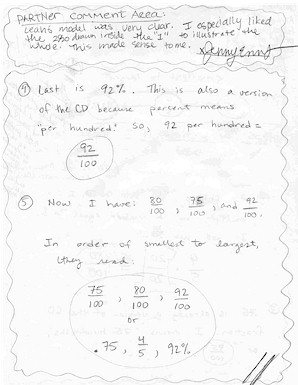 PARTNER COMMENT AREA:
Jean's model was very clear. I especially liked
the 280 drawn inside the "1" to illustrate the
whole. This made sense to me.
④ Last is 92%. This is also a version
of the CD because percent means
"per hundred." So, 92 per hundred =
92
100
⑤ Now I have: 80/100, 75/100, and 92/100.
In order of smallest to largest,
they read:
75/100, 80/100, 92/100
or
.75, 4/5, 92%